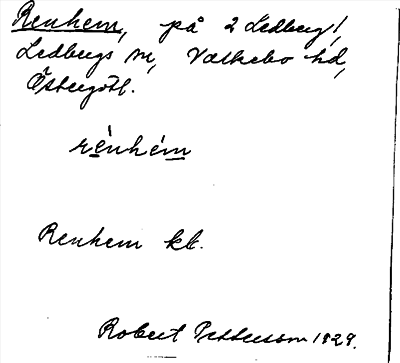 Renhem, på 2 Ledberg,
Ledbergs sn, Valkebo hd,
Östergötl.
rénhém
Renhem kt.
Robert Pettersson 1929.